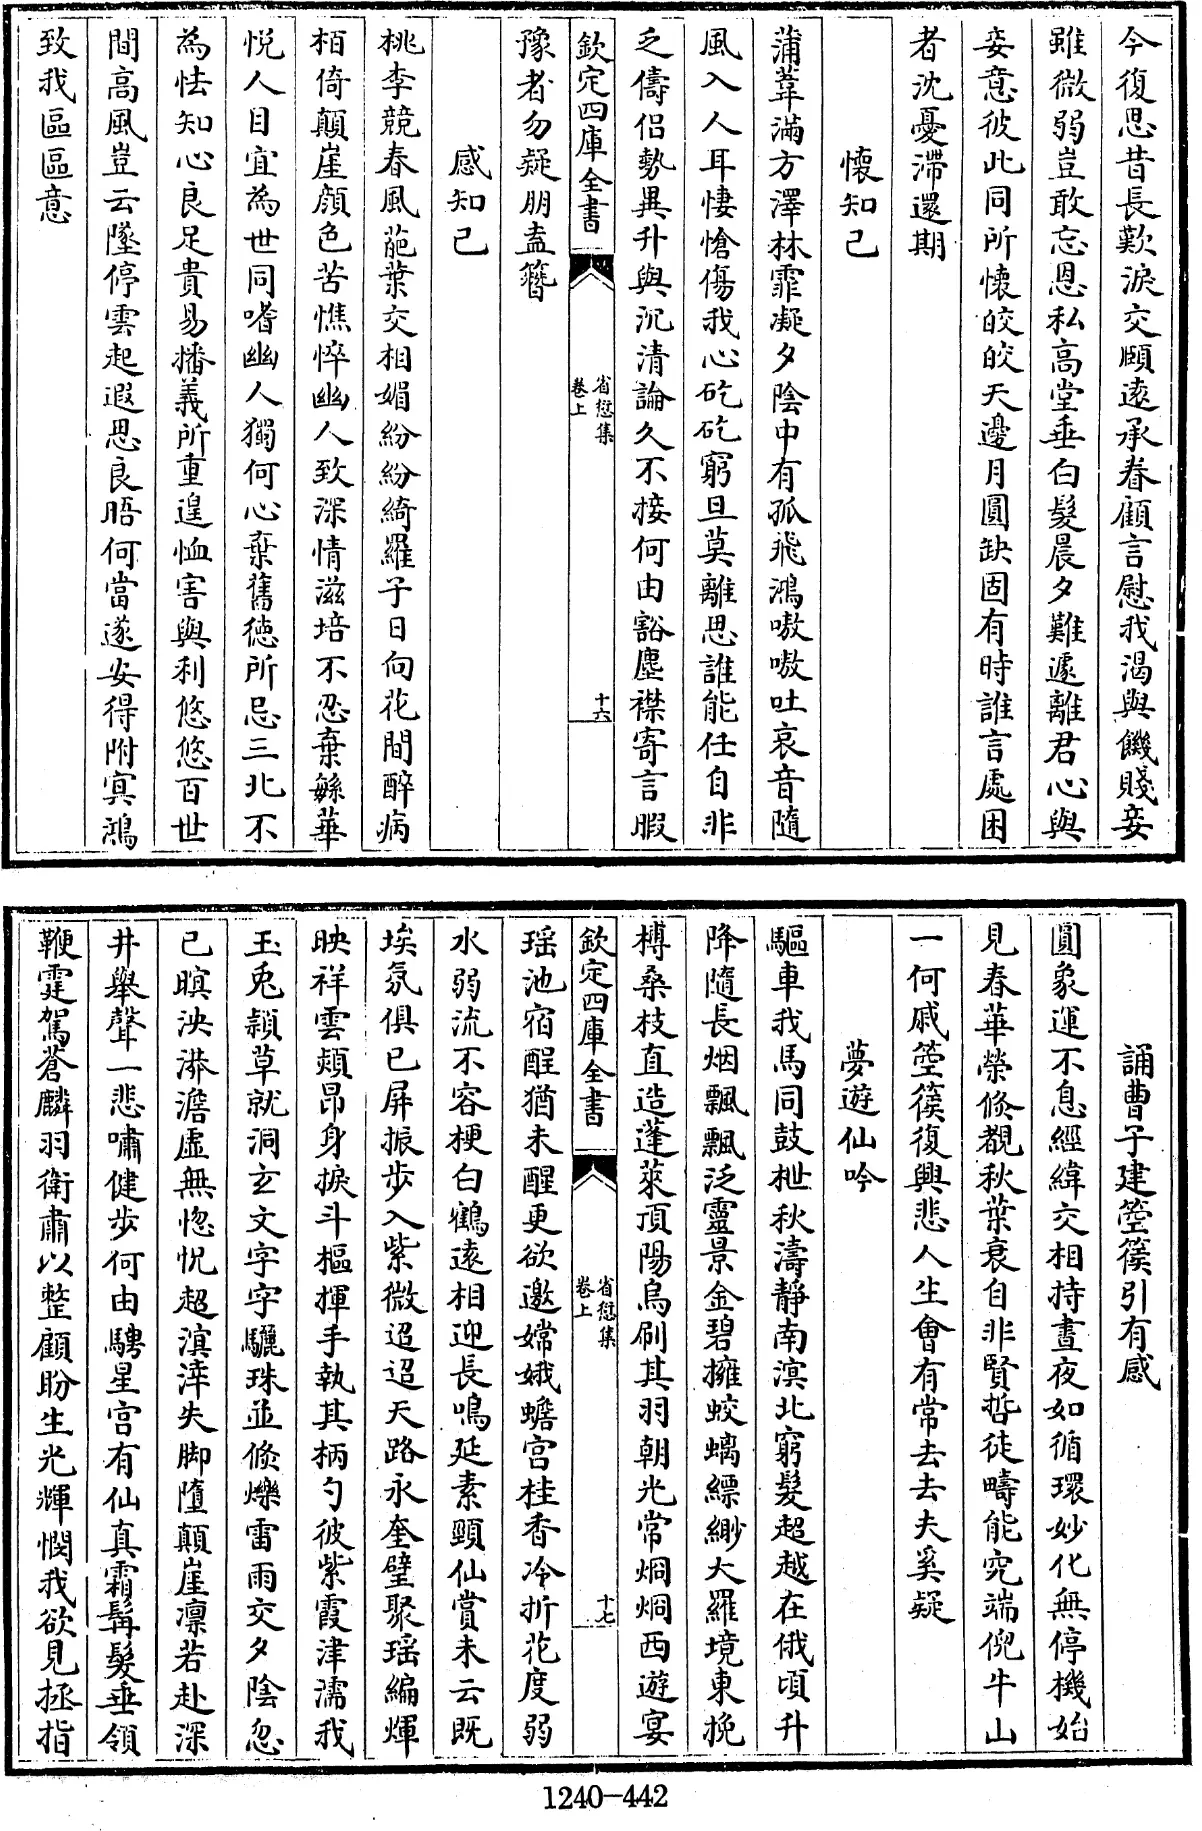 今復思昔長歎淚交頤遠承眷顧言慰我渴與饑賤妾
雖微弱豈敢忘恩私高堂垂白髮晨夕難遽離君心與
妾意彼此同所懷皎皎天邊月圓缺固有時誰言處困
者沈憂滯還期
懷知己
蒲葦滿方澤林霏凝夕陰中有孤飛鴻嗷嗷吐哀音隨
風入人耳悽愴傷我心矻矻窮旦莫離思誰能任自非
乏儔侶勢異升與沉清論久不接何由豁塵襟寄言暇
欽定四庫全書
省愆集
卷上
十六
豫者勿疑朋盍簪
感知己
桃李競春風葩葉交相媚紛紛綺羅子日向花間醉病
栢倚顛崖顔色苦憔悴幽人致深情滋培不忍棄繁華
悅人目宜為世同嗜幽人獨何心棄舊德所忌三北不
為怯知心良足貴易播義所重遑恤害與利悠悠百世
間高風豈云墜停雲起遐思良晤何當遂安得附冥鴻
致我區區意
誦曹子建箜篌引有感
圓象運不息經緯交相持晝夜如循環妙化無停機始
見春華榮倐覩秋葉衰自非賢哲徒疇能究端倪牛山
一何戚箜篌復興悲人生會有常去去夫奚疑
夢遊仙吟
驅車我馬同鼓枻秋濤靜南溟北窮髮超越在俄頃升
降隨長烟飄飄泛靈景金碧擁蛟螭縹緲大羅境東挽
榑桑枝直造蓬萊頂陽烏刷其羽朝光常烱烱西遊宴
欽定四庫全書
省愆集
卷上
十七
瑶池宿酲猶未醒更欲邀嫦娥蟾宮桂香冷折花度弱
水弱流不容梗白鶴遠相迎長鳴延素頸仙賞未云既
埃氛俱已屏振步入紫微迢迢天路永奎璧聚瑶編煇
映祥雲頰昂身捩斗樞揮手執其柄勺彼紫霞津濡我
玉兎穎草就洞玄文字字驪珠並倐爍雷雨交夕陰忽
已暝泱漭澹虛無惚怳超溟涬失脚墮顛崖凛若赴深
井舉聲一悲嘯健步何由騁星宫有仙真霜髯髮垂領
鞭霆駕蒼麟羽衛肅以整顧盼生光輝憫我欲見拯指
1240-442